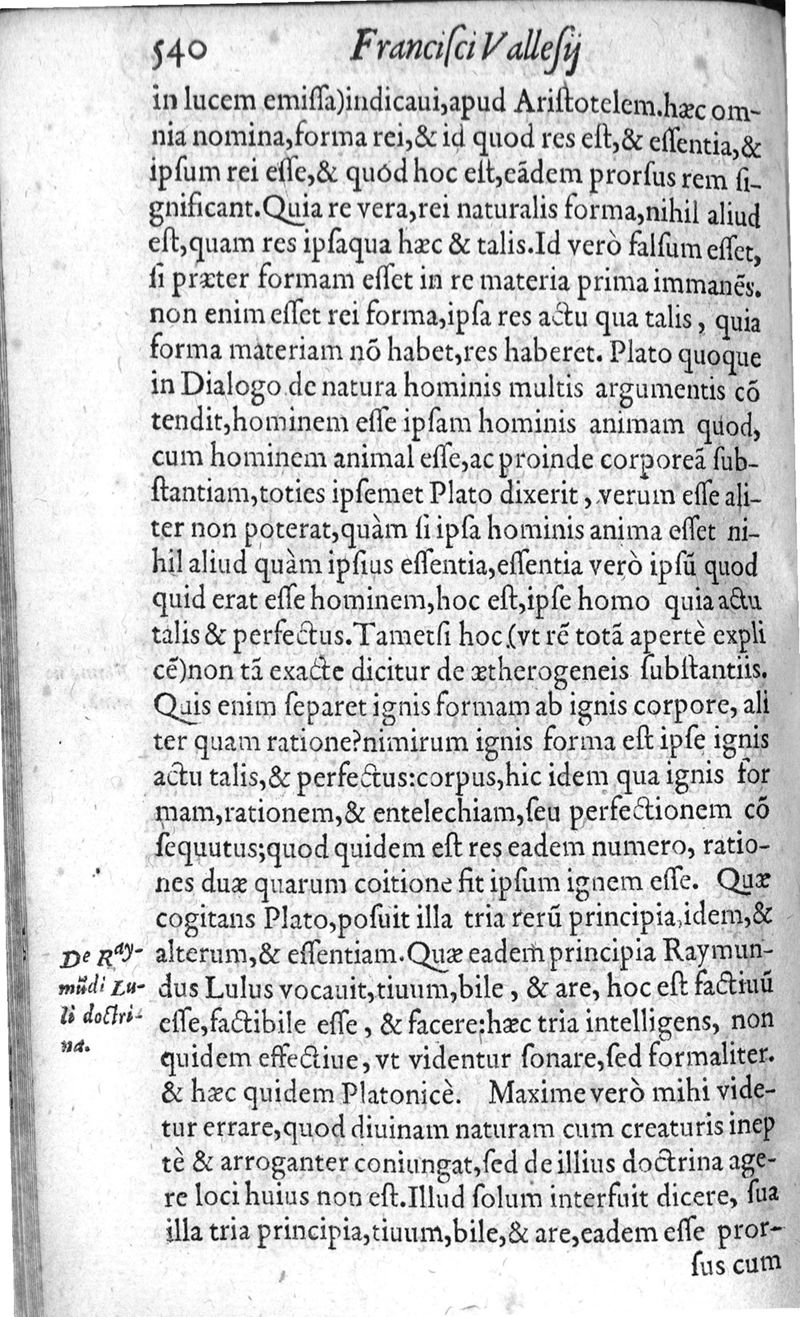 540 Franciſci Valleſij
in lucem emiſſa)indicaui,apud Ariſtotelem.hæc om-
nia nomina,forma rei,& id quod res eſt,& eſſentia,&
ipſum rei eſſe,& quód hoc eſt,eãdem prorſus rem ſi-
gnificant.Quia re vera,rei naturalis forma,nihil aliud
eſt,quam res ipſaqua hæc & talis.Id verò falſum eſſet,
ſi præter formam eſſet in re materia prima immanẽs.
non enim eſſet rei forma,ipſa res actu qua talis, quia
forma materiam nõ habet,res haberet. Plato quoque
in Dialogo de natura hominis multis argumentis cõ
tendit,hominem eſſe ipſam hominis animam quod,
cum hominem animal eſſe,ac proinde corporeã ſub-
ſtantiam,toties ipſemet Plato dixerit, verum eſſe ali-
ter non poterat,quàm ſi ipſa hominis anima eſſet ni-
hil aliud quàm ipſius eſſentia,eſſentia verò ipſũ quod
quid erat eſſe hominem,hoc eſt,ipſe homo quia actu
talis & perfectus.Tametſi hoc (vt rẽ totã apertè expli
cẽ)non tã exacte dicitur de ætherogeneis ſubſtantiis.
Quis enim ſeparet ignis formam ab ignis corpore, ali
ter quam ratione?nimirum ignis forma eſt ipſe ignis
actu talis,& perfectus:corpus,hic idem qua ignis for
mam,rationem,& entelechiam,ſeu perfectionem cõ
ſequutus;quod quidem eſt res eadem numero, ratio-
nes duæ quarum coitione fit ipſum ignem eſſe. Quæ
cogitans Plato,poſuit illa tria rerũ principia,idem,&
alterum,& eſſentiam.Quæ eadem principia Raymun-
dus Lulus vocauit,tiuum,bile, & are, hoc eſt factiuũ
eſſe,factibile eſſe, & facere:hæc tria intelligens, non
quidem effectiue, vt videntur ſonare,ſed formaliter.
& hæc quidem Platonicè. Maxime verò mihi vide-
tur errare,quod diuinam naturam cum creaturis inep
tè & arroganter coniungat,ſed de illius doctrina age-
re loci huius non eſt.Illud ſolum interfuit dicere, ſua
illa tria principia,tiuum,bile,& are,eadem eſſe pror-
ſus cum
De Ray-
mũdi Lu-
li doctri-
na.